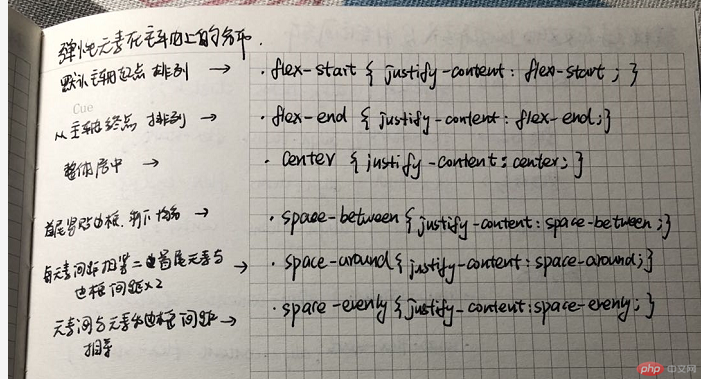 弹性元素在主轴上的分布.
默认主轴起点 排列 → · flex-start { justify-content: flex-start; }
Cue
从主轴终点 排列 → · flex-end { justify-content: flex-end;}
整体居中 → · center { justify-content: center; }
首尾紧贴边框, 剩下均分 → · space-between{ justify-content: space-between;}
每元素间距相等 = 首尾元素与 → · space-around{ justify-content: space-around;}
边框间距×2
元素间与元素和边框间距 → · space-evenly{ justify-content:space-evenly; }
相等
php 中文网